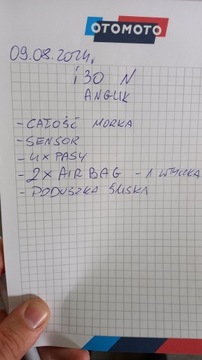 OTOMOTO
09.08.2024.
i30 N
ANGLIK
- CAŁOŚĆ MOKRA
- SENSOR
- 4x PASY
- 2x AIRBAG - 1 WTYCZKA
- PODUSZKA ŚLISKA